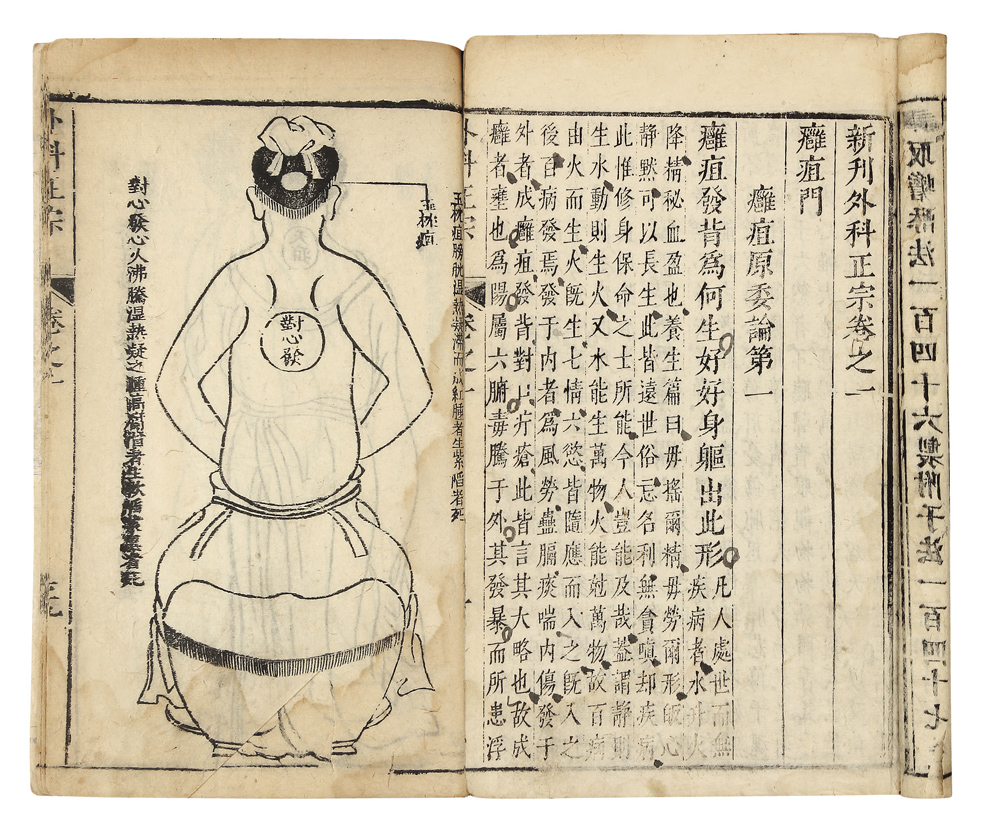 取蟾酥法一百四十六製附子法一百四十七
新刊外科正宗卷之一
癰疽門
癰疽原委論第一
癰疽發背為何生好好身軀出此形
凡人處世而無
疾病者水升火
降精秘血盈也養生篇曰毋搖爾精毋勞爾形皈心
靜默可以長生此皆遠世俗忘名利無貪嗔却疾病
此惟修身保命之士所能今人豈能及哉蓋謂靜則
生水動則生火又水能生萬物火能尅萬物故百病
由火而生火既生七情六慾皆隨應而入之既入之
後百病發焉發于内者為風勞蠱膈痰喘内傷發于
外者成癰疽發背對口疔瘡此皆言其大略也故成
癰者壅也為陽屬六腑毒騰于外其發暴而所患浮
外科正宗 卷之一
玉枕疽膀胱濕熱凝滯而成紅腫者生紫陷者死
玉枕疽
對心發
對心發心火沸騰濕熱凝之腫高者生軟陷紫黑者死
外科正宗 卷之一